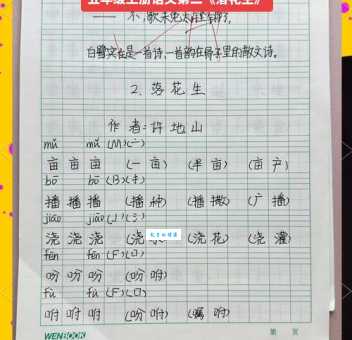 五年级上册语文第二《落花生》
白鹭实在是一首诗,一首韵在骨子里的散文诗。
2、落花生
作者:许地山
mǔ mǔ (M)(亠)
亩 亩 亩 (一亩) (半亩) (亩产)
bō bō (B)(扌)
播 播 播 (播种) (播撒) (广播)
jiāo jiāo (J)(氵)
浇 浇 浇 (浇水) (浇花) (浇灌)
fēn fēn (F)(口)
吩 吩 吩 (吩咐)
fù fù (F)(口)
咐 咐 咐 (吩咐) (嘱咐)
WENBOOK 第 页